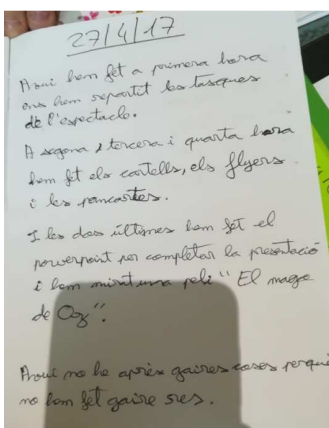 27/4/17
Avui hem fet a primera hora
ens hem repartit les tasques
de l'espectacle.
A segona, tercera i quarta hora
hem fet els cartells, els flyers
i les pancartes.
I les dos últimes hem fet el
powerpoint per completar la presentació
i hem mirat una peli "El mago
de Oz".
Avui no he après gaires coses perquè
no hem fet gaire res.